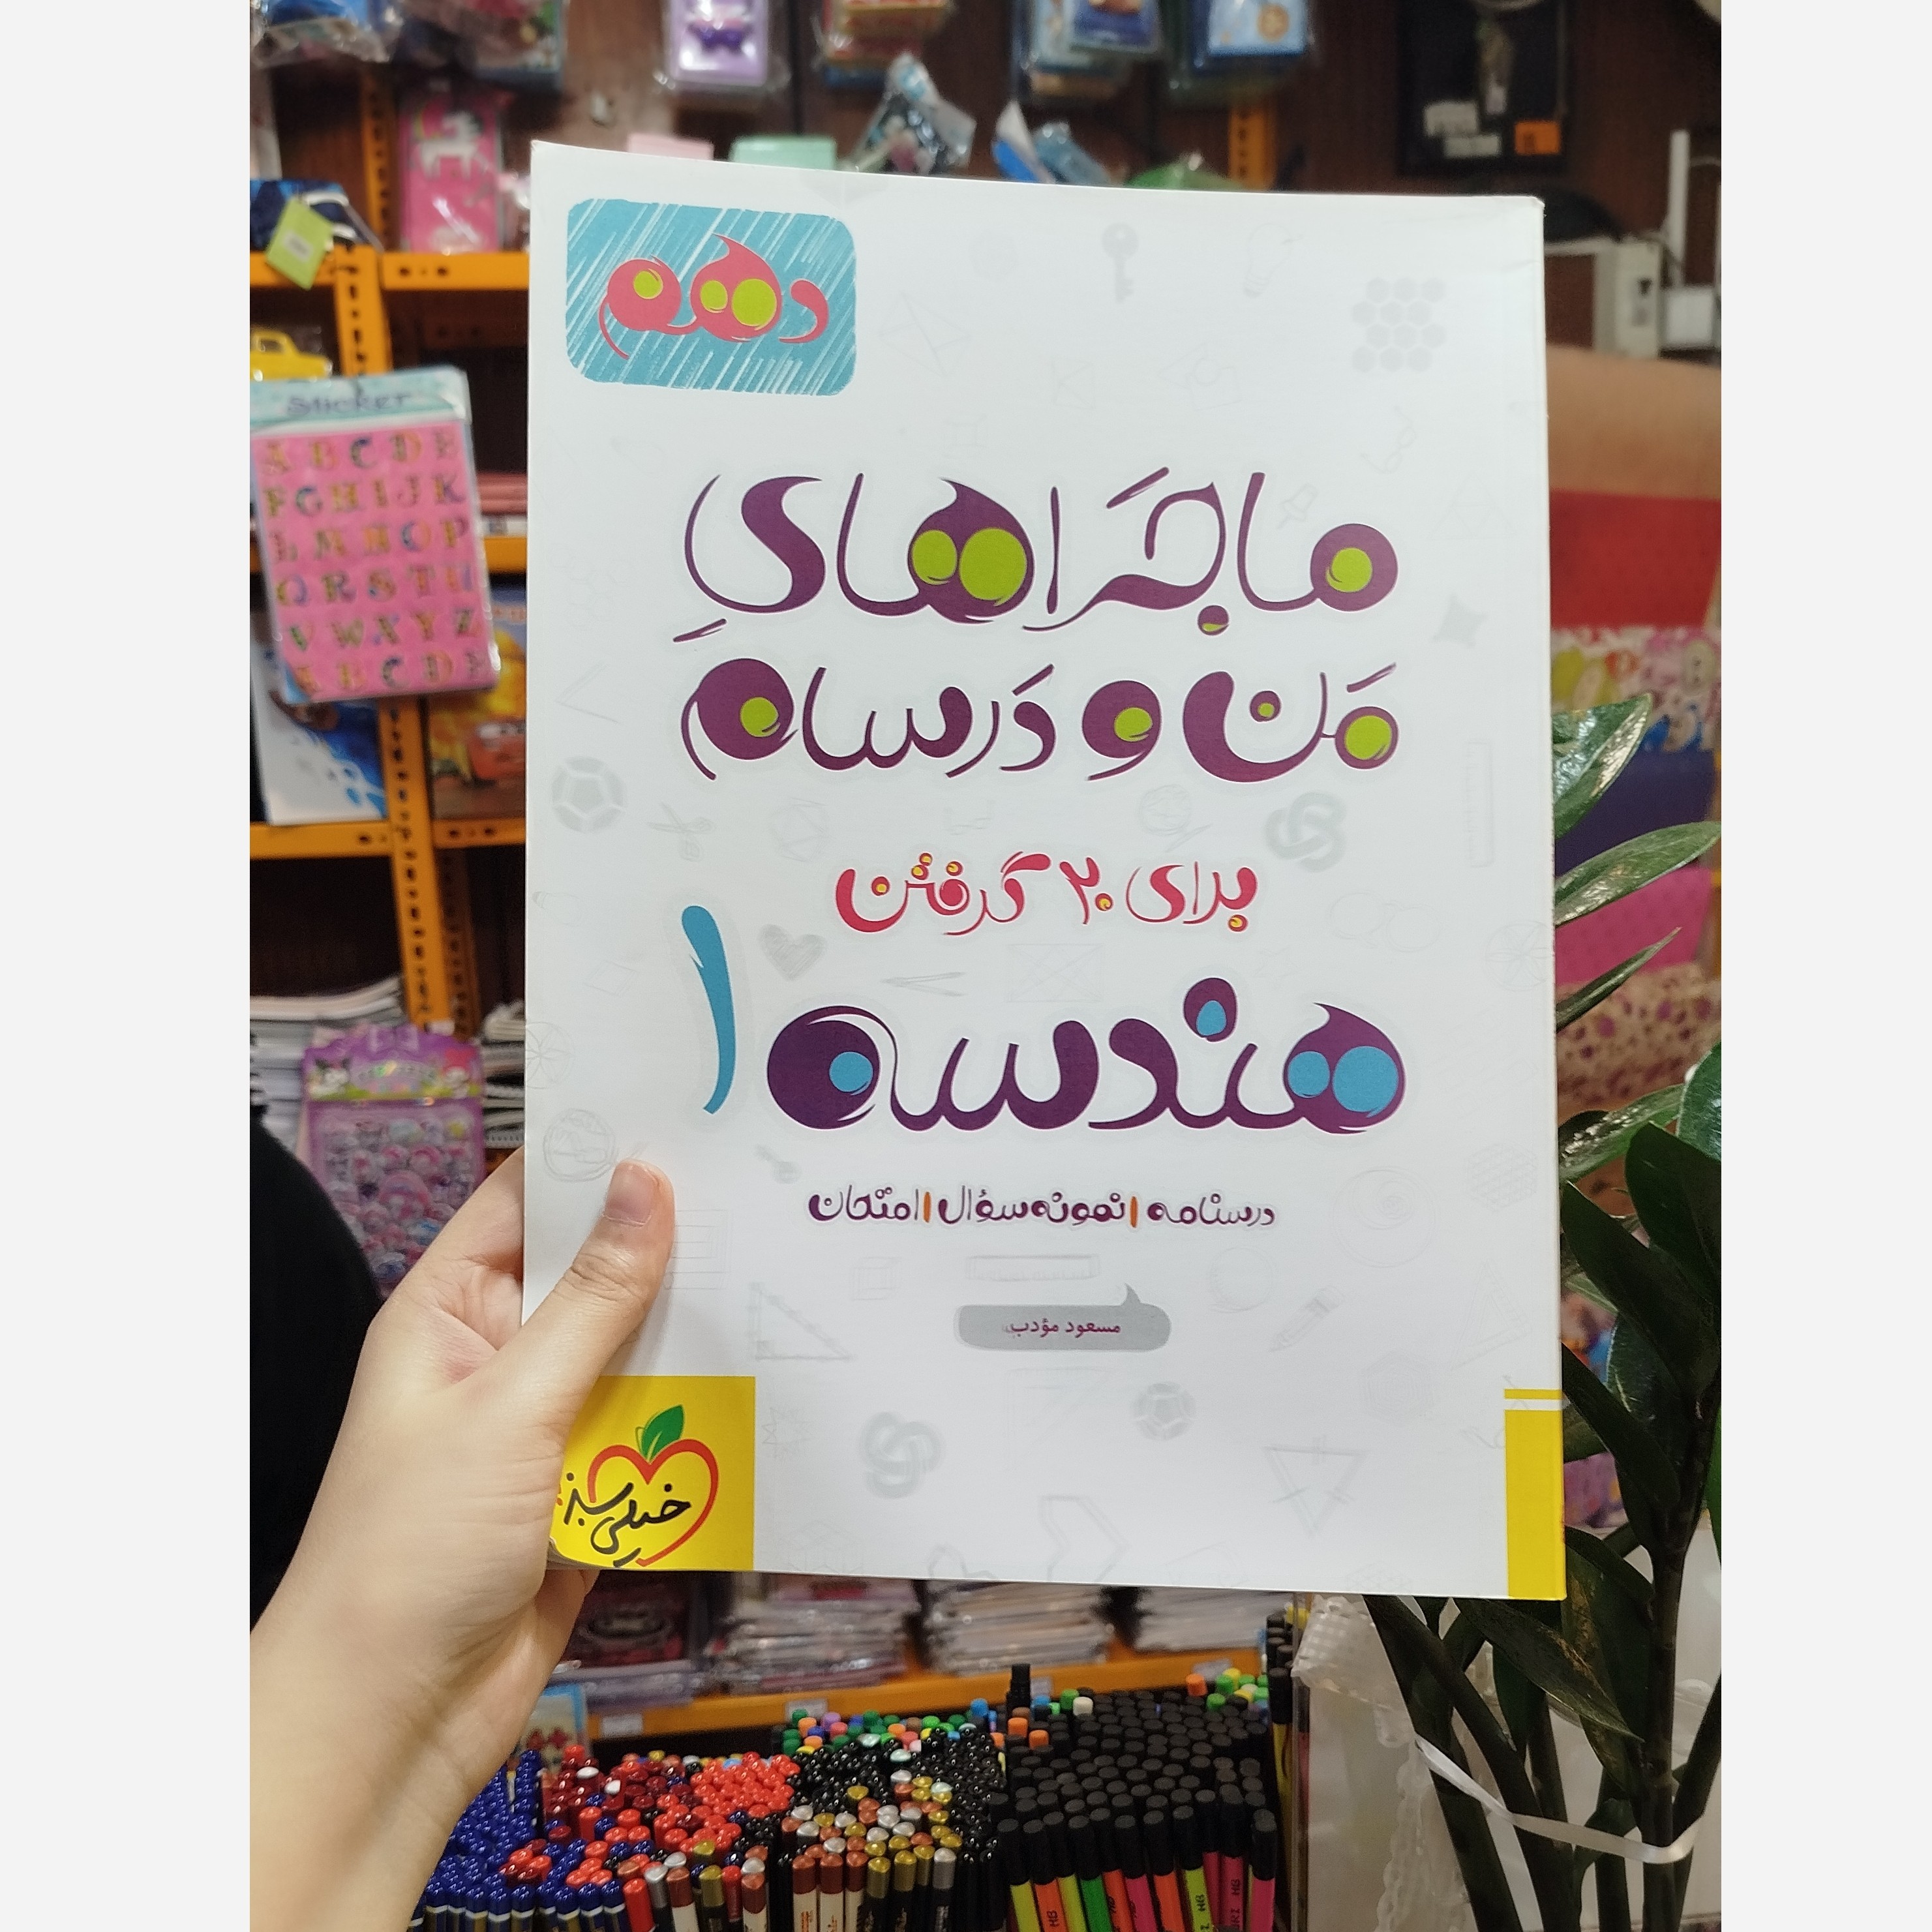 دهم
ماجَراهایِ
مَن و دَرسام
برای ۲۰ گرفتن
هندسه ۱
درسنامه | نمونه‌سؤال | امتحان
مسعود مؤدب
خیلی سبز
Sticker
A B C D E
F G H I J K
L M N O P
Q R S T U
V W X Y Z
A B C D E
HB
HB
HB